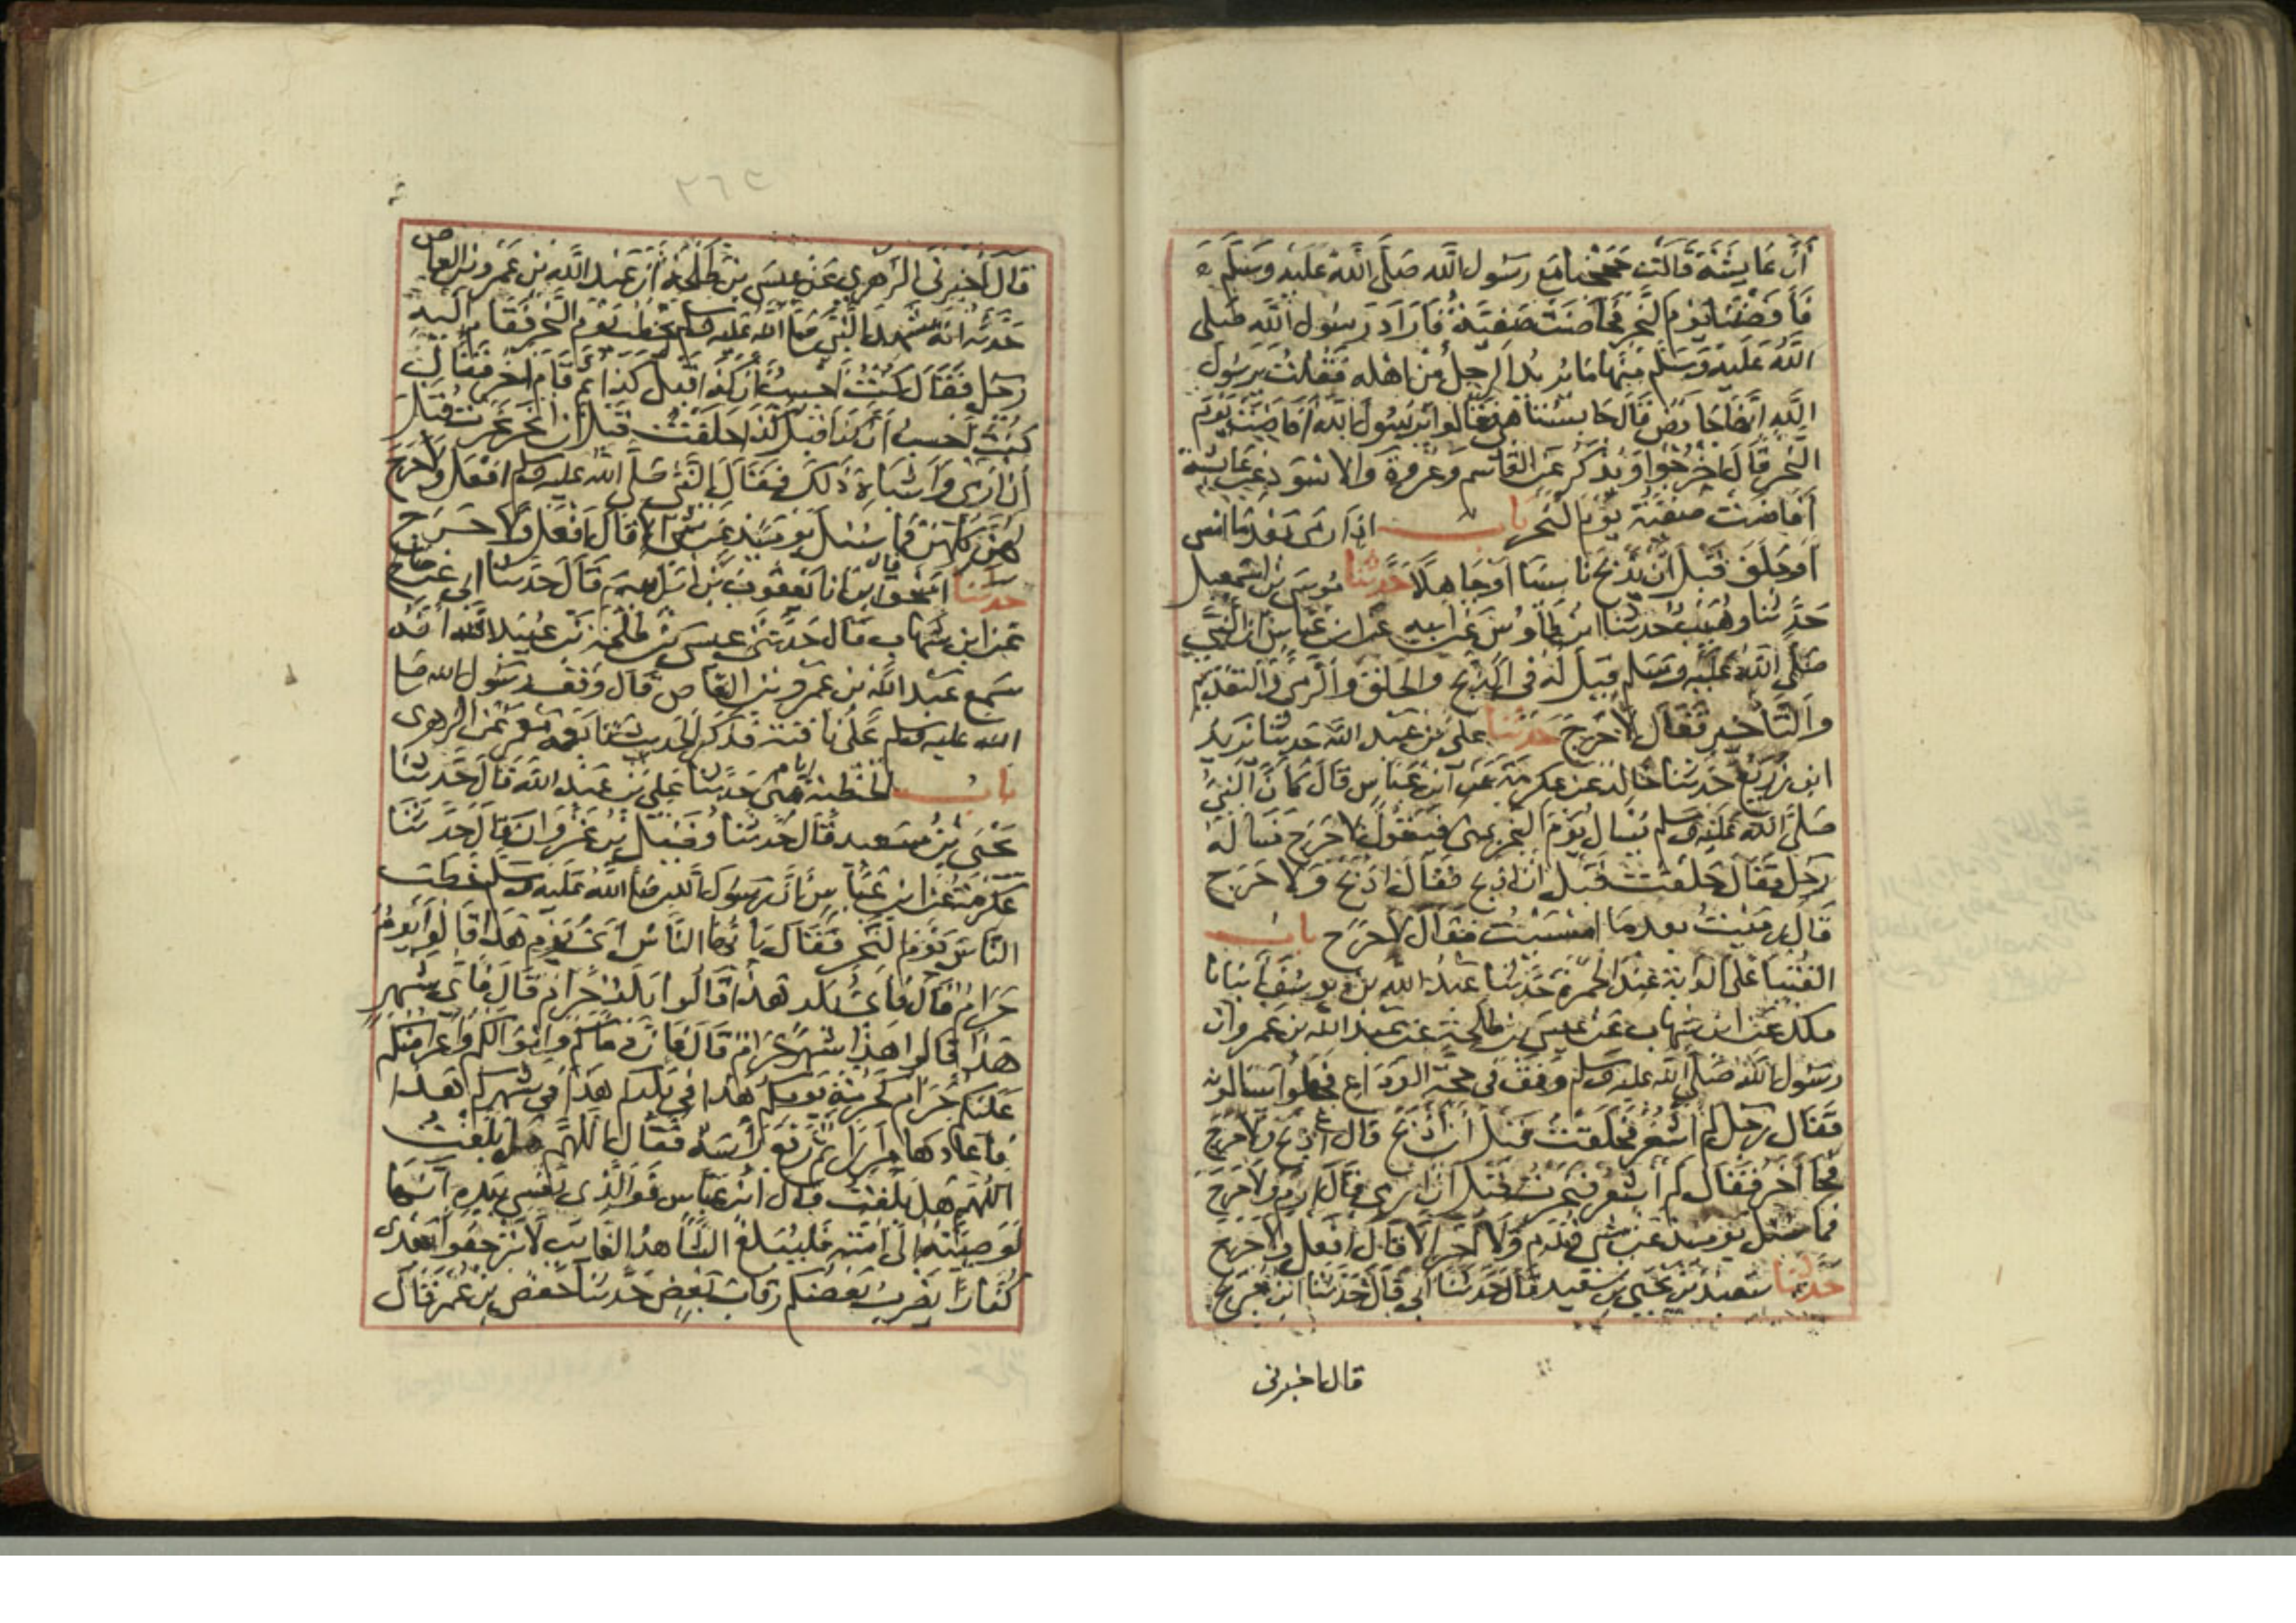 أن عايشة قالت حججنا مع رسول الله صلى الله عليه وسلم
فأفضنا يوم النحر فحاضت صفية فأراد رسول الله صلى
الله عليه وسلم منها ما يريد الرجل من اهله فقلت يرسول
الله إنها حايض قال حابستنا هي قالوا يرسول الله أفاضت يوم
النحر قال اخرجوا ويذكر عن القاسم وعروة والاسود عن عايشة
أفاضت صفية يوم النحر باب إذا رمى بعد ما امسى
أو حلق قبل أن يذبح ناسيا أو جاهلا حدثنا موسى بن اسمعيل
حدثنا وهيب حدثنا ابن طاوس عن ابيه عن ابن عباس ان النبي
صلى الله عليه وسلم قيل له في الذبح والحلق والرمي والتقديم
والتأخير فقال لا حرج حدثنا علي بن عبد الله حدثنا يزيد
ابن زريع حدثنا خالد عن عكرمة عن ابن عباس قال كان النبي
صلى الله عليه وسلم يسال يوم النحر بمنى فيقول لا حرج فساله
رجل فقال حلقت قبل ان اذبح فقال اذبح ولا حرج
قال رميت بعد ما امسيت فقال لا حرج باب
الفتيا على الدابة عند الجمرة حدثنا عبد الله بن يوسف أنبانا
ملك عن ابن شهاب عن عيسى بن طلحة عن عبد الله بن عمرو ان
رسول الله صلى الله عليه وسلم وقف في حجة الوداع فجعلوا يسالونه
فقال رجل لم اشعر فحلقت قبل أن أذبح قال اذبح ولا حرج
فجا آخر فقال لم أشعر فنحرت قبل أن ارمي قال ارم ولا حرج
فما سئل يوميذ عن شي قدم ولا اخر الا قال افعل ولا حرج
حدثنا سعيد بن يحيى بن سعيد قال حدثنا ابي قال حدثنا ابن جريج
قال اخبرني
٢٦٤
قال أخبرني الزهري عن عيسى بن طلحة أن عبد الله بن عمرو بن العاص
حدثه انه شهد النبي صلى الله عليه وسلم يخطب يوم النحر فقام اليه
رجل فقال كنت أحسب أن كذا قبل كذا ثم قام اخر فقال
كنت احسب أن كذا قبل كذا حلقت قبل ان انحر نحرت قبل
أن ارمي وأشباه ذلك فقال النبي صلى الله عليه وسلم افعل ولا حرج
لهن كلهن فما سئل يوميذ عن شي إلا قال افعل ولا حرج
حدثنا اسحق قال انا يعقوب بن ابرهيم قال حدثنا ابي عن صالح
عن ابن شهاب قال حدثني عيسى بن طلحة بن عبيد الله أنه
سمع عبد الله بن عمرو بن العاص قال وقف رسول الله صلى
الله عليه وسلم على ناقته فذكر الحديث تابعه معمر عن الزهري
باب الخطبة ايام منى حدثنا علي بن عبد الله قال حدثنا
يحيى بن سعيد قال حدثنا فضيل بن غزوان قال حدثنا
عكرمة عن ابن عباس أن رسول الله صلى الله عليه وسلم خطب
الناس يوم النحر فقال يا ئها الناس أي يوم هذا قالوا يوم
حرام قال فأي بلد هذا قالوا بلد حرام قال فأي شهر
هذا قالوا هذا شهر حرام قال فان دماكم واموالكم واعراضكم
عليكم حرام كحرمة يومكم هذا في بلدكم هذا في شهركم هذا
فاعادها مرارا ثم رفع رأسه فقال اللهم هل بلغت
اللهم هل بلغت قال ابن عباس فوالذي نفسي بيده انها
لوصيته الى امته فليبلغ الشاهد الغايب لا ترجعوا بعدي
كفارا يضرب بعضكم رقاب بعض حدثنا حفص بن عمر قال